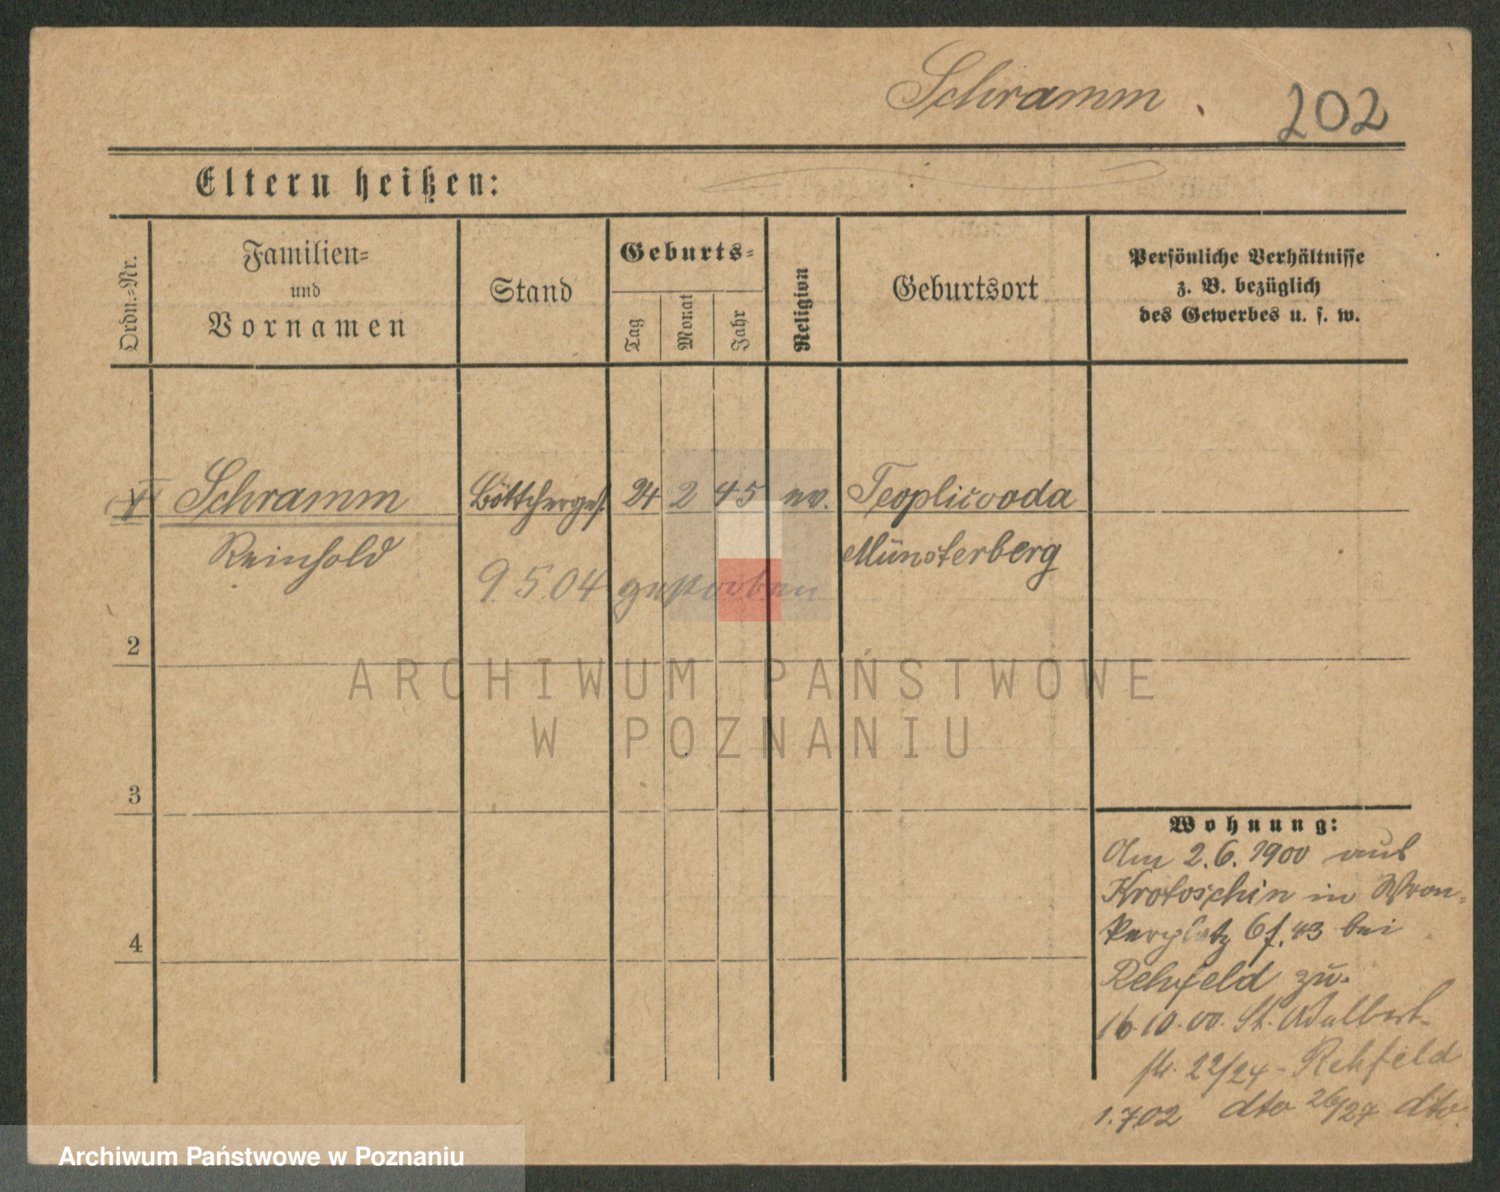 Schramm.
202
Eltern heißen:
Ordn.-Nr.
Familien-
und
Vornamen
Stand
Geburts-
Tag
Monat
Jahr
Religion
Geburtsort
Persönliche Verhältnisse
z. B. bezüglich
des Gewerbes u. s. w.
Schramm Böttcherges. 24 2 45 ev. Teopliwoda
Reinhold Münsterberg
9.5.04 gestorben
2
3
4
Wohnung:
Am 2.6.1900 aus
Krotoschin in Wron-
kerplatz 6 f. 43 bei
Rehfeld zu.
16.10.00. St. Adalbert-
str. 22/24 - Rehfeld
1.7.02 dto 26/27 dto.
ARCHIWUM PAŃSTWOWE
W POZNANIU
Archiwum Państwowe w Poznaniu